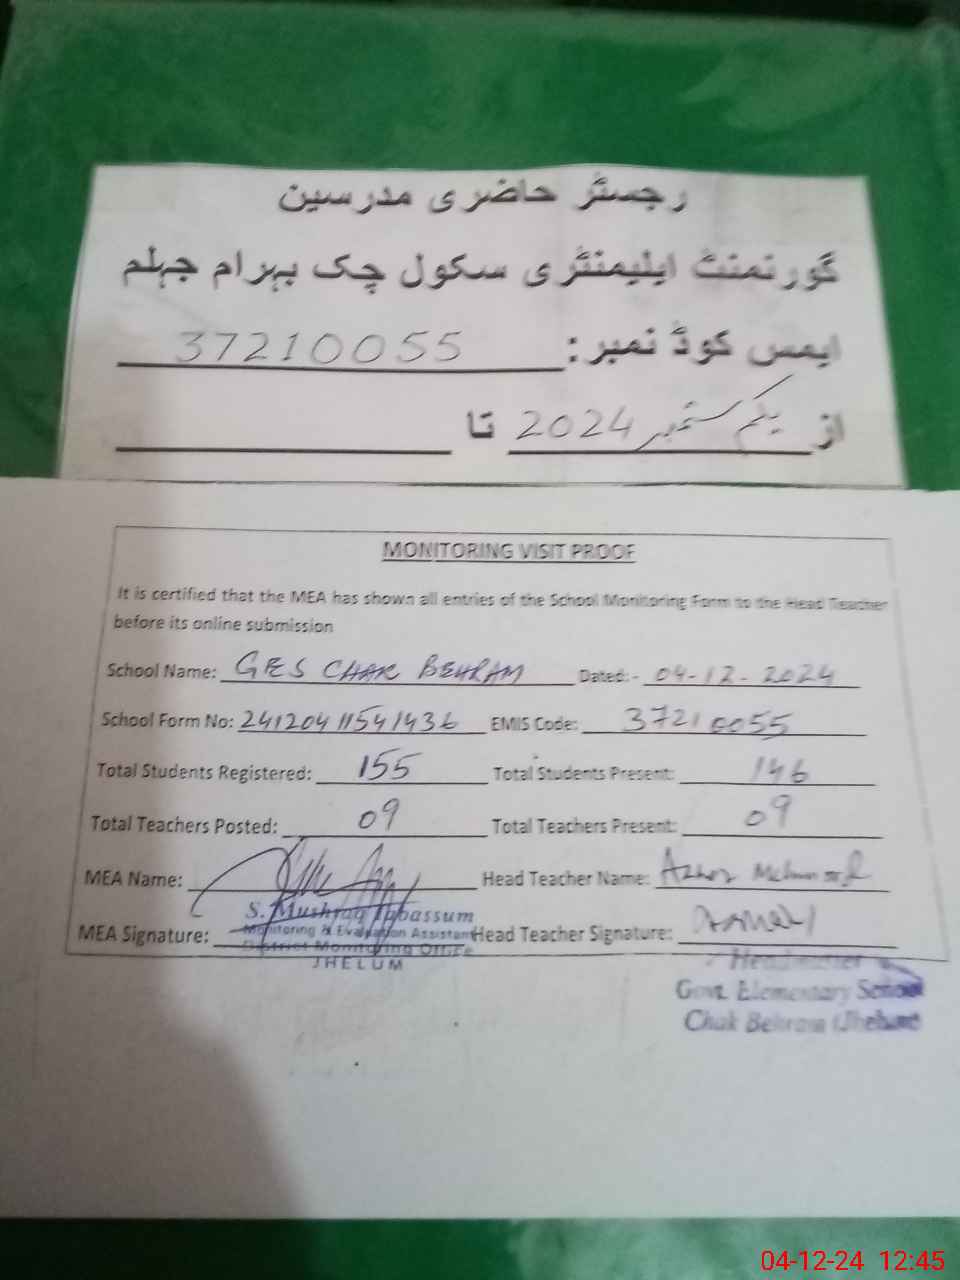 رجسٹر حاضری مدرسین
گورنمنٹ ایلیمنٹری سکول چک بہرام جہلم
ایمس کوڈ نمبر: 37210055
از یکم ستمبر 2024 تا
MONITORING VISIT PROOF
It is certified that the MEA has shown all entries of the School Monitoring Form to the Head Teacher
before its online submission
School Name: GES CHAK BEHRAM Dated:- 04-12-2024
School Form No: 24120411541436 EMIS Code: 37210055
Total Students Registered: 155 Total Students Present: 146
Total Teachers Posted: 09 Total Teachers Present: 09
MEA Name: Head Teacher Name: Azhar
S. Mushtaq Tabassum
Monitoring & Evaluation Assistant
MEA Signature: Head Teacher Signature:
District Monitoring Office
JHELUM
Headmaster
Govt. Elementary School
Chak Behram (Jhelum)
04-12-24 12:45